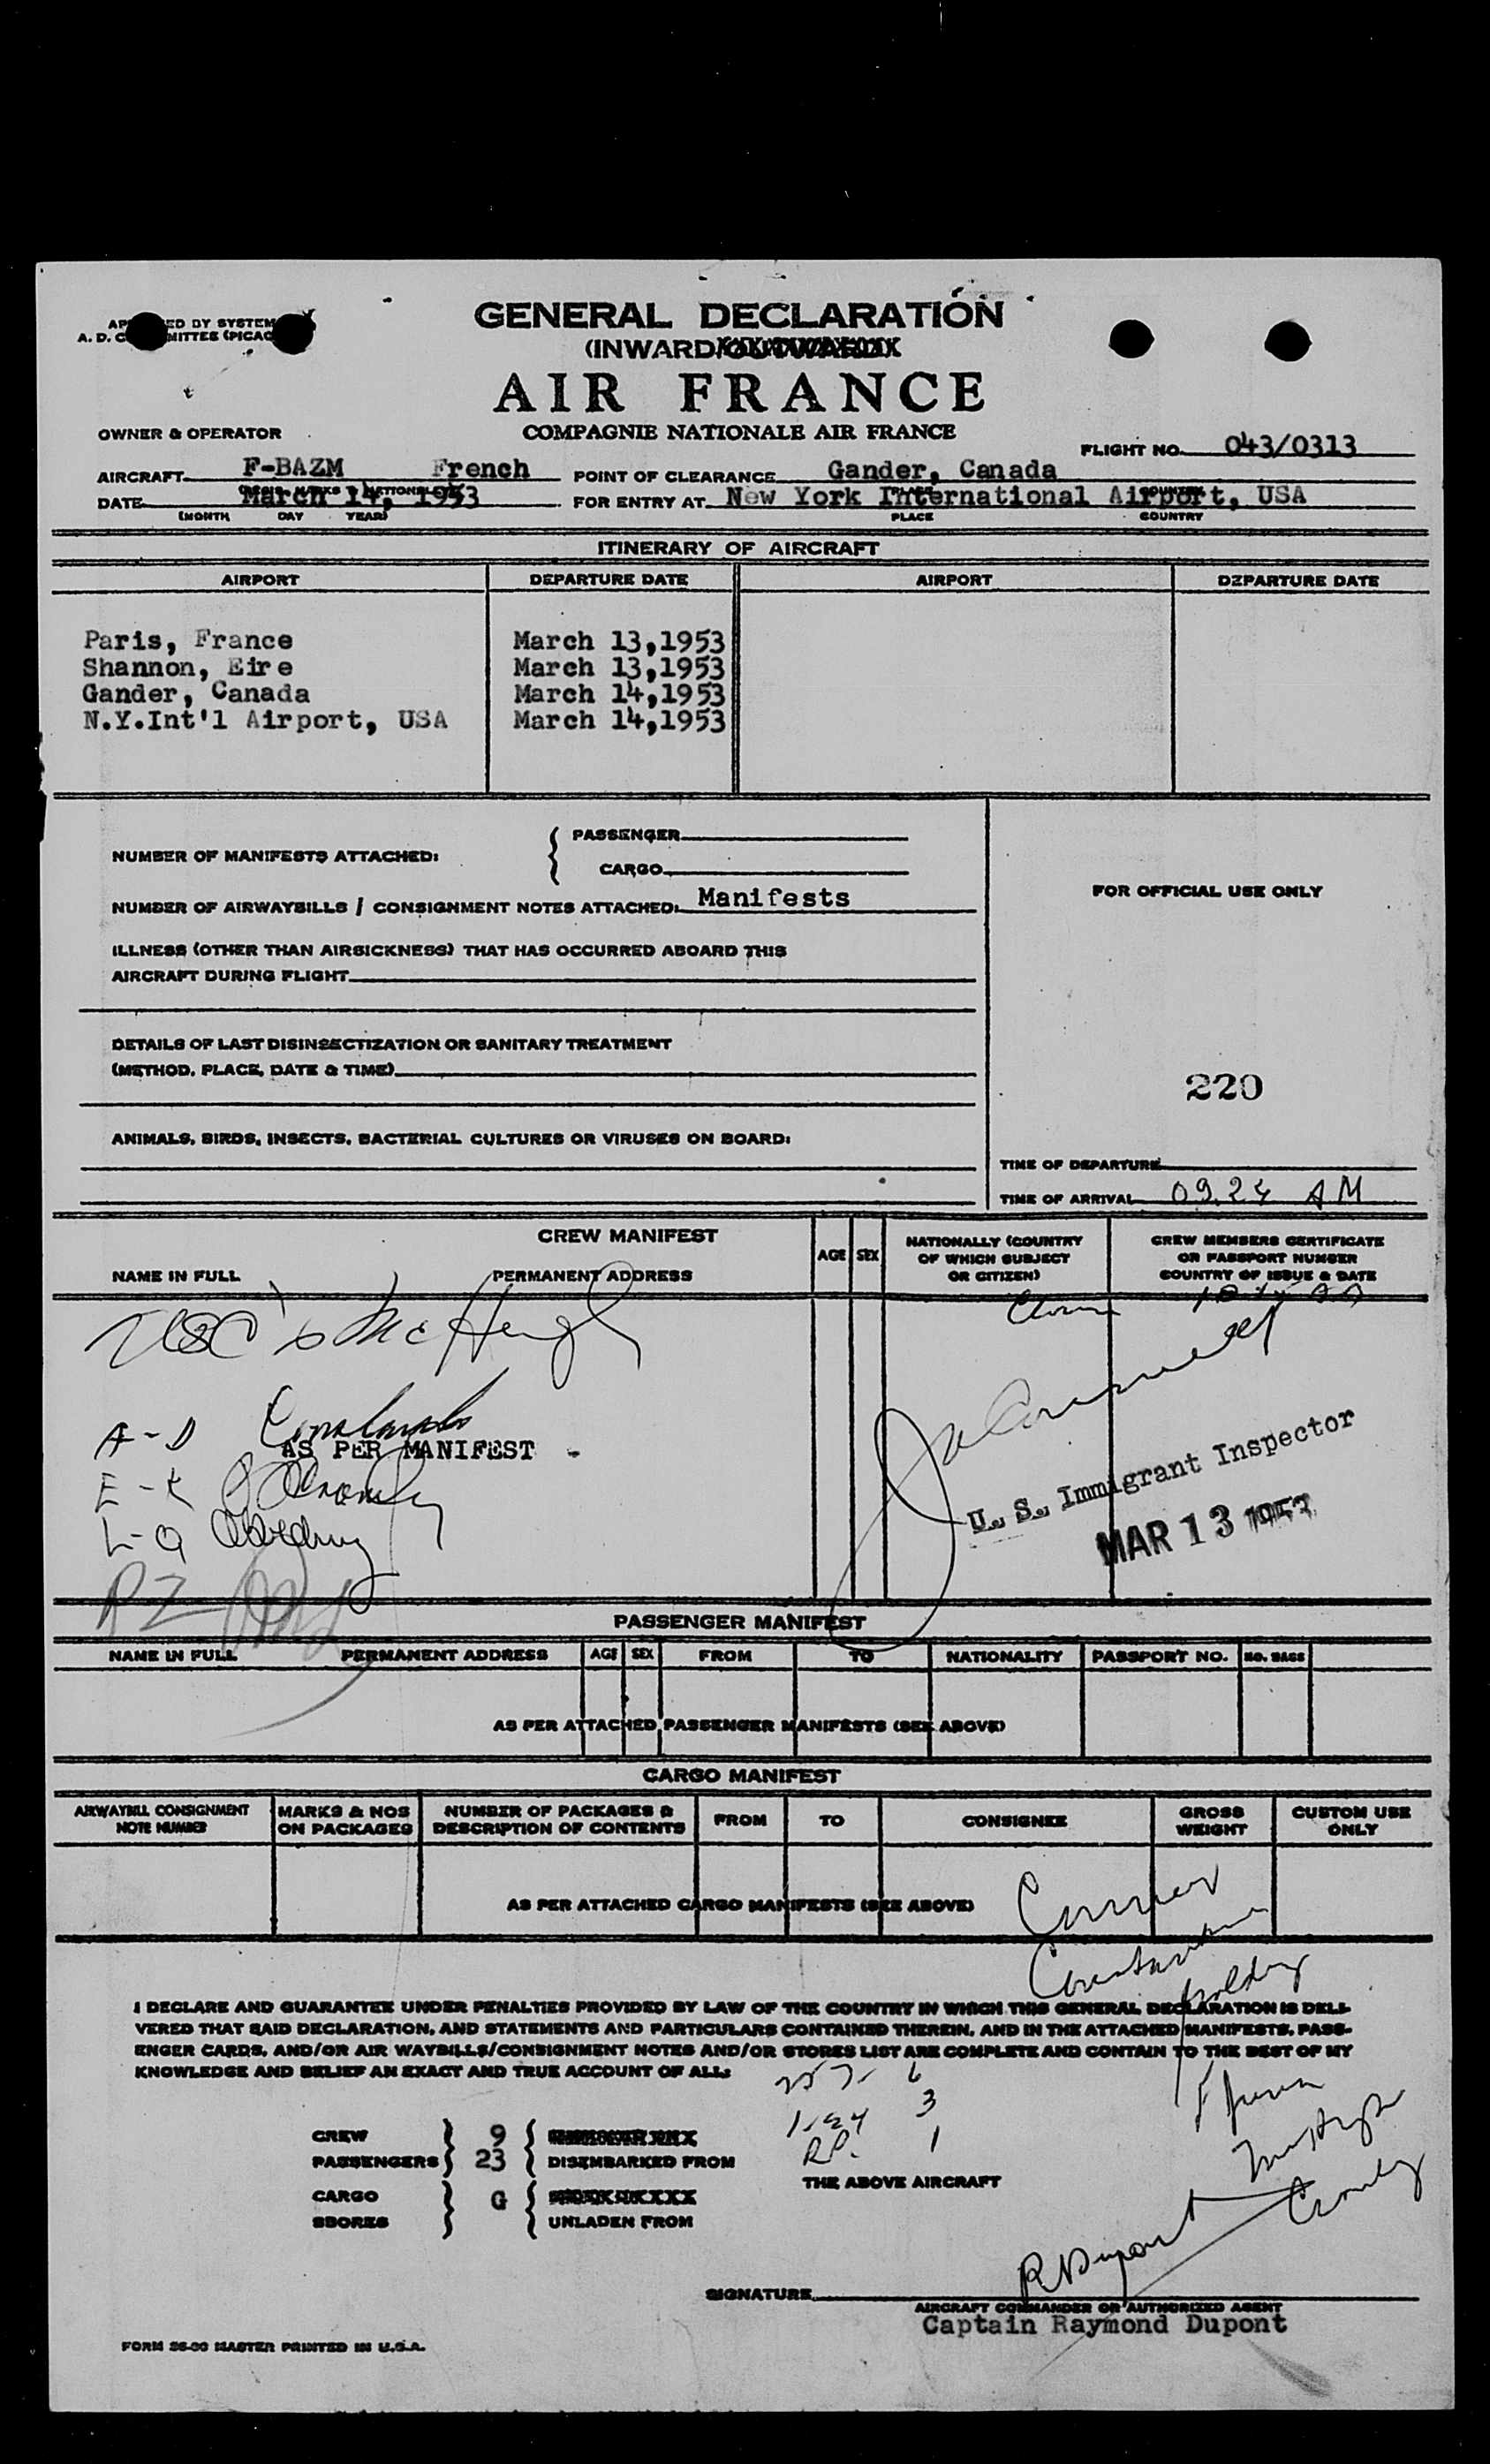 GENERAL DECLARATION
(INWARD/
AIR FRANCE
COMPAGNIE NATIONALE AIR FRANCE
OWNER & OPERATOR
FLIGHT NO. 043/0313
AIRCRAFT F-BAZM French POINT OF CLEARANCE Gander, Canada
DATE March 14, 1953 FOR ENTRY AT New York International Airport, USA
(MONTH DAY YEAR) PLACE COUNTRY
ITINERARY OF AIRCRAFT
AIRPORT DEPARTURE DATE AIRPORT DEPARTURE DATE
Paris, France March 13,1953
Shannon, Eire March 13,1953
Gander, Canada March 14,1953
N.Y.Int'l Airport, USA March 14,1953
NUMBER OF MANIFESTS ATTACHED: { PASSENGER
CARGO
NUMBER OF AIRWAYBILLS / CONSIGNMENT NOTES ATTACHED: Manifests
FOR OFFICIAL USE ONLY
ILLNESS (OTHER THAN AIRSICKNESS) THAT HAS OCCURRED ABOARD THIS
AIRCRAFT DURING FLIGHT
DETAILS OF LAST DISINSECTIZATION OR SANITARY TREATMENT
(METHOD, PLACE, DATE & TIME)
220
ANIMALS, BIRDS, INSECTS, BACTERIAL CULTURES OR VIRUSES ON BOARD:
TIME OF DEPARTURE
TIME OF ARRIVAL 09.24 AM
CREW MANIFEST
NAME IN FULL PERMANENT ADDRESS AGE SEX
NATIONALLY (COUNTRY
OF WHICH SUBJECT
OR CITIZEN)
CREW MEMBERS CERTIFICATE
OR PASSPORT NUMBER
COUNTRY OF ISSUE & DATE
USC's McHugh
A-D
AS PER MANIFEST -
E-K
L-Q
R Z
U. S. Immigrant Inspector
MAR 13 1953
PASSENGER MANIFEST
NAME IN FULL PERMANENT ADDRESS AGE SEX FROM TO NATIONALITY PASSPORT NO. NO. BAGS
AS PER ATTACHED PASSENGER MANIFESTS (SEE ABOVE)
CARGO MANIFEST
AIRWAYBILL CONSIGNMENT
NOTE NUMBER
MARKS & NOS
ON PACKAGES
NUMBER OF PACKAGES &
DESCRIPTION OF CONTENTS
FROM TO CONSIGNEE
GROSS
WEIGHT
CUSTOM USE
ONLY
AS PER ATTACHED CARGO MANIFESTS (SEE ABOVE)
I DECLARE AND GUARANTEE UNDER PENALTIES PROVIDED BY LAW OF THE COUNTRY IN WHICH THIS GENERAL DECLARATION IS DELI-
VERED THAT SAID DECLARATION, AND STATEMENTS AND PARTICULARS CONTAINED THEREIN, AND IN THE ATTACHED MANIFESTS, PASS-
ENGER CARDS, AND/OR AIR WAYBILLS/CONSIGNMENT NOTES AND/OR STORES LIST ARE COMPLETE AND CONTAIN TO THE BEST OF MY
KNOWLEDGE AND BELIEF AN EXACT AND TRUE ACCOUNT OF ALL:
6
3
1
CREW } 9 {
PASSENGERS } 23 { DISEMBARKED FROM
THE ABOVE AIRCRAFT
CARGO } G {
SBORES UNLADEN FROM
R Dupont
SIGNATURE
AIRCRAFT COMMANDER OR AUTHORIZED AGENT
Captain Raymond Dupont
FORM 36-00 MASTER PRINTED IN U.S.A.